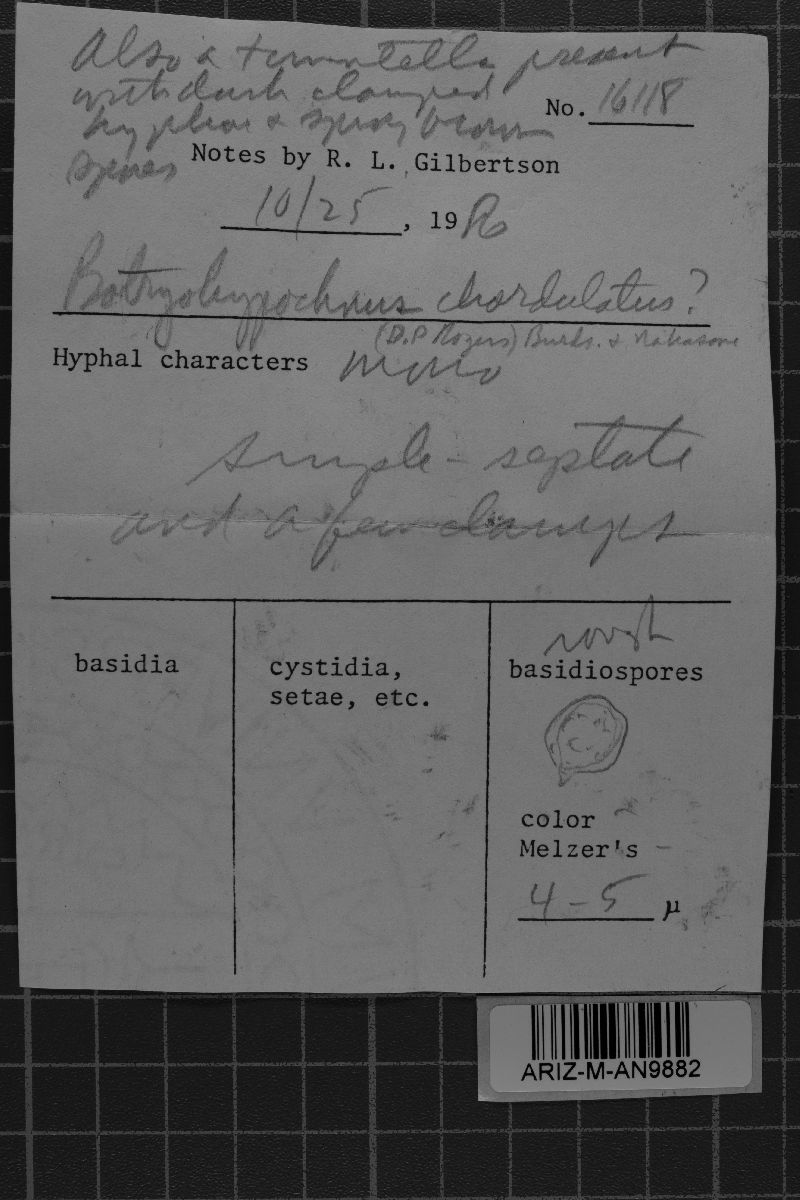 Also a tomentella present
with dark clamped
No. 16118
hyphae & spiny brown
spores
Notes by R. L. Gilbertson
10/25, 19
Botryohypochnus chordulatus?
(D.P. Rogers) Burds. & Nakasone
Hyphal characters mono
simple - septate
and a few clamps
rough
basidia
cystidia,
setae, etc.
basidiospores
color -
Melzer's -
4-5 μ
ARIZ-M-AN9882